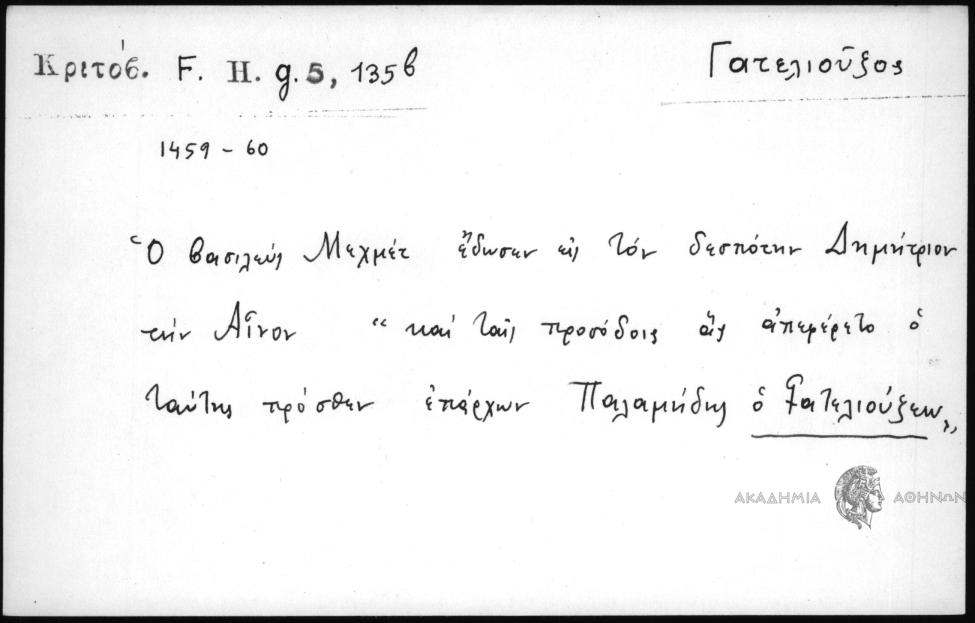 Κριτόβ. F. H. g. 5, 135β Γατελιοῦξος
1459 - 60
Ὁ βασιλεύς Μεχμέτ ἔδωσεν εἰς τόν δεσπότην Δημήτριον
τήν Αἶνον " καί ταῖς προσόδοις ἅς ἀπεφέρετο ὁ
ταύτης πρόσθεν ἐπάρχων Παλαμήδης ὁ Γατελιούξεω"
ΑΚΑΔΗΜΙΑ ΑΘΗΝΩΝ